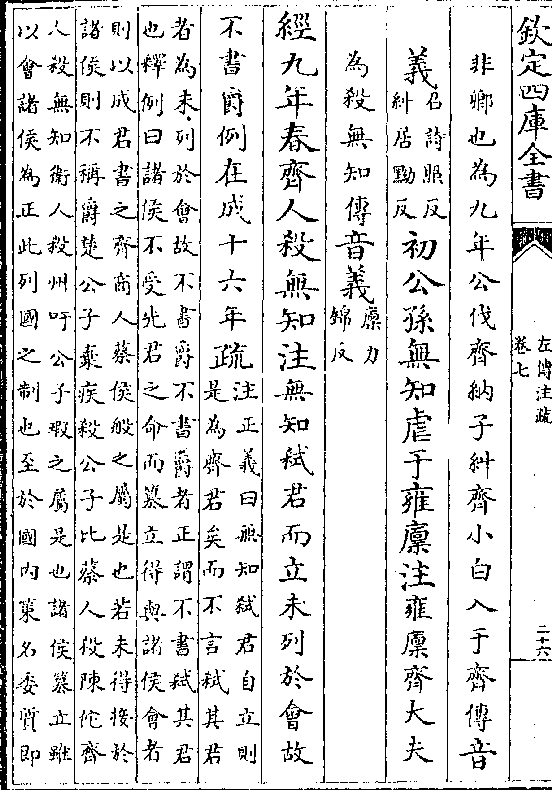 欽定四庫全書
左傳注疏
卷七
二十六
非卿也為九年公伐齊納子糾齊小白入于齊傳音
義
召詩照反
糾居黝反
初公孫無知虐于雍廩注雍廩齊大夫
為殺無知傳音義
廩力
錦反
經九年春齊人殺無知注無知弒君而立未列於會故
不書爵例在成十六年疏
注正義曰無知弒君自立則
是為齊君矣而不言弒其君
者為未列於會故不書爵不書爵者正謂不書弒其君
也釋例曰諸侯不受先君之命而篡立得與諸侯會者
則以成君書之齊商人蔡侯般之屬是也若未得接於
諸侯則不稱爵楚公子棄疾殺公子比蔡人殺陳佗齊
人殺無知衛人殺州吁公子瑕之屬是也諸侯篡立雖
以會諸侯為正此列國之制也至於國內策名委質即